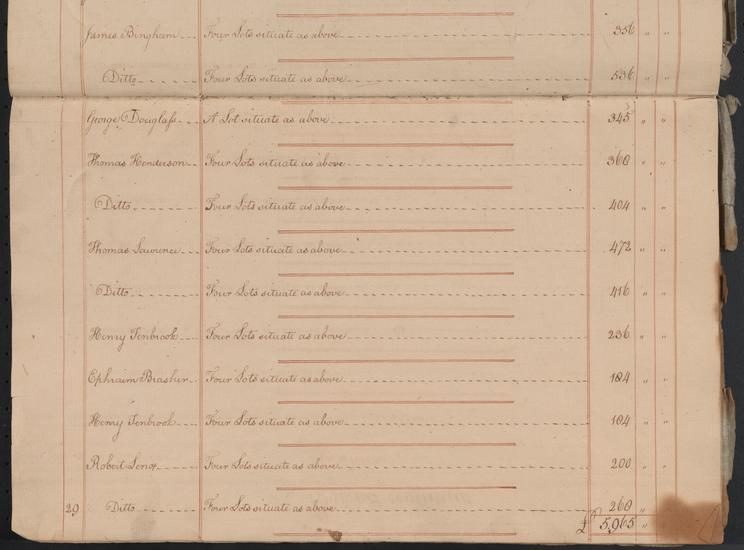 James Bingham Four Lots situate as above 356 " "
Ditto Four Lots situate as above 536 " "
George Douglass A Lot situate as above 345 " "
Thomas Henderson Four Lots situate as above 360 " "
Ditto Four Lots situate as above 404 " "
Thomas Lawrence Four Lots situate as above 472 " "
Ditto Four Lots situate as above 416 " "
Henry Tenbrook Four Lots situate as above 236 " "
Ephraim Brasher Four Lots situate as above 184 " "
Henry Tenbrook Four Lots situate as above 184 " "
Robert Lenox Four Lots situate as above 200 " "
29 Ditto Four Lots situate as above 260 "
£ 5,965 "